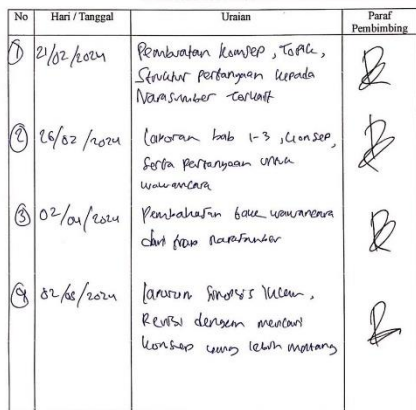 No Hari / Tanggal Uraian Paraf Pembimbing
1 21/02/2024 Pembuatan Konsep, Topik,
Struktur pertanyaan kepada
Narasumber terkait
2 26/02/2024 Laporan bab 1-3, Konsep,
Serta pertanyaan untuk
wawancara
3 02/04/2024 Pembahasan wawancara
dari narasumber
4 02/05/2024 Laporan Sinopsis
Revisi dengan mencari
Konsep yang lebih matang